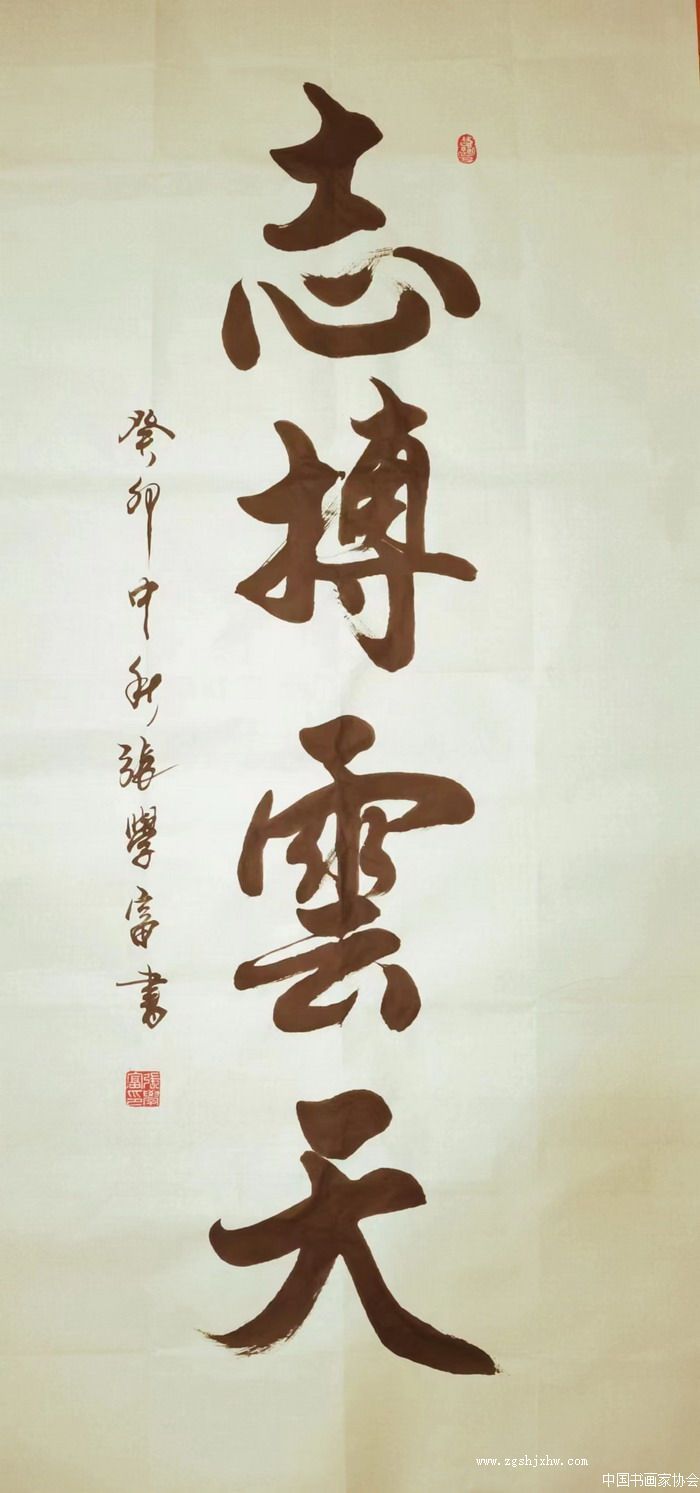 志搏雲天
癸卯中秋張學富書
張學富印
www.zgshjxhw.com
中国书画家协会